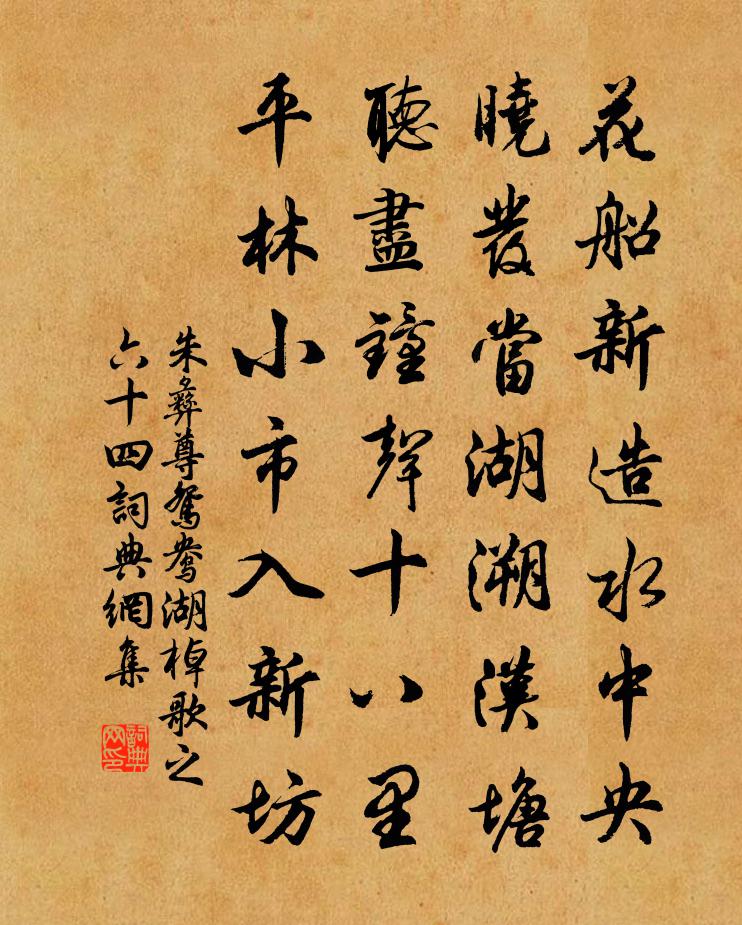 花船新造水中央
曉發當湖溯漢塘
聽盡鐘聲十八里
平林小市入新坊
朱彝尊鴛鴦湖棹歌之
六十四詞典網集
詞典网印